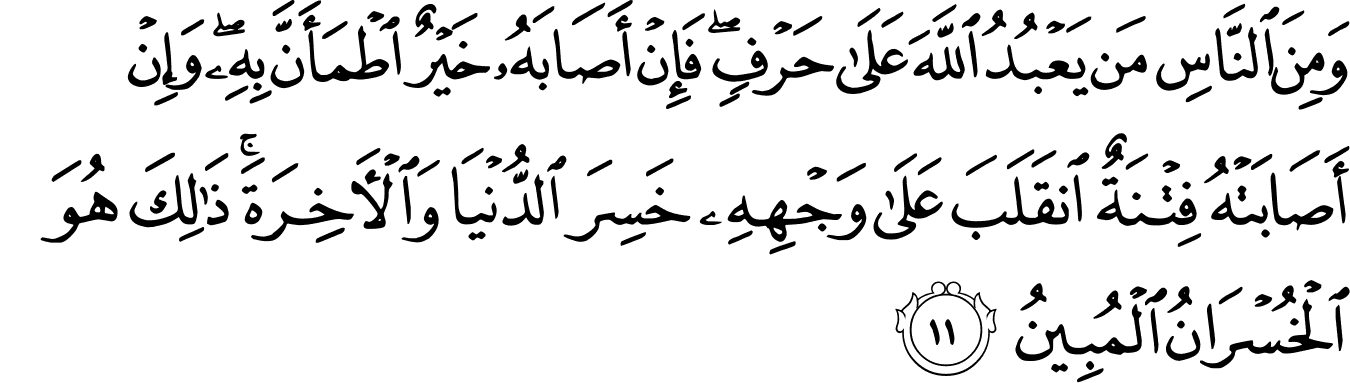 وَمِنَ ٱلنَّاسِ مَن يَعۡبُدُ ٱللَّهَ عَلَىٰ حَرۡفٖۖ فَإِنۡ أَصَابَهُۥ خَيۡرٌ ٱطۡمَأَنَّ بِهِۦۖ وَإِنۡ
أَصَابَتۡهُ فِتۡنَةٌ ٱنقَلَبَ عَلَىٰ وَجۡهِهِۦ خَسِرَ ٱلدُّنۡيَا وَٱلۡأٓخِرَةَۚ ذَٰلِكَ هُوَ
ٱلۡخُسۡرَانُ ٱلۡمُبِينُ ١١